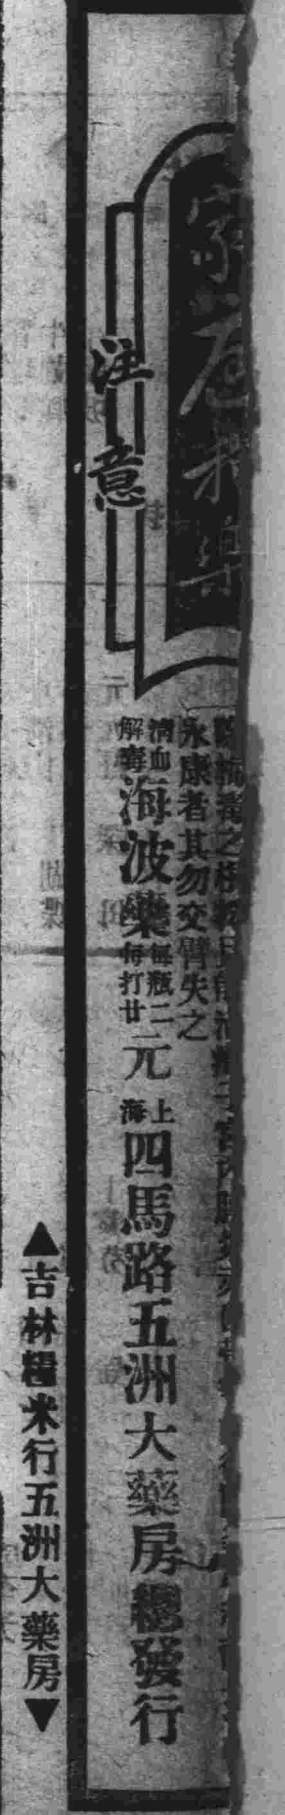 家庭和樂
注意
永康者其勿交臂失之
清血解毒海波藥每瓶二元每打廿元
上海四馬路五洲大藥房總發行
▲吉林糧米行五洲大藥房▼